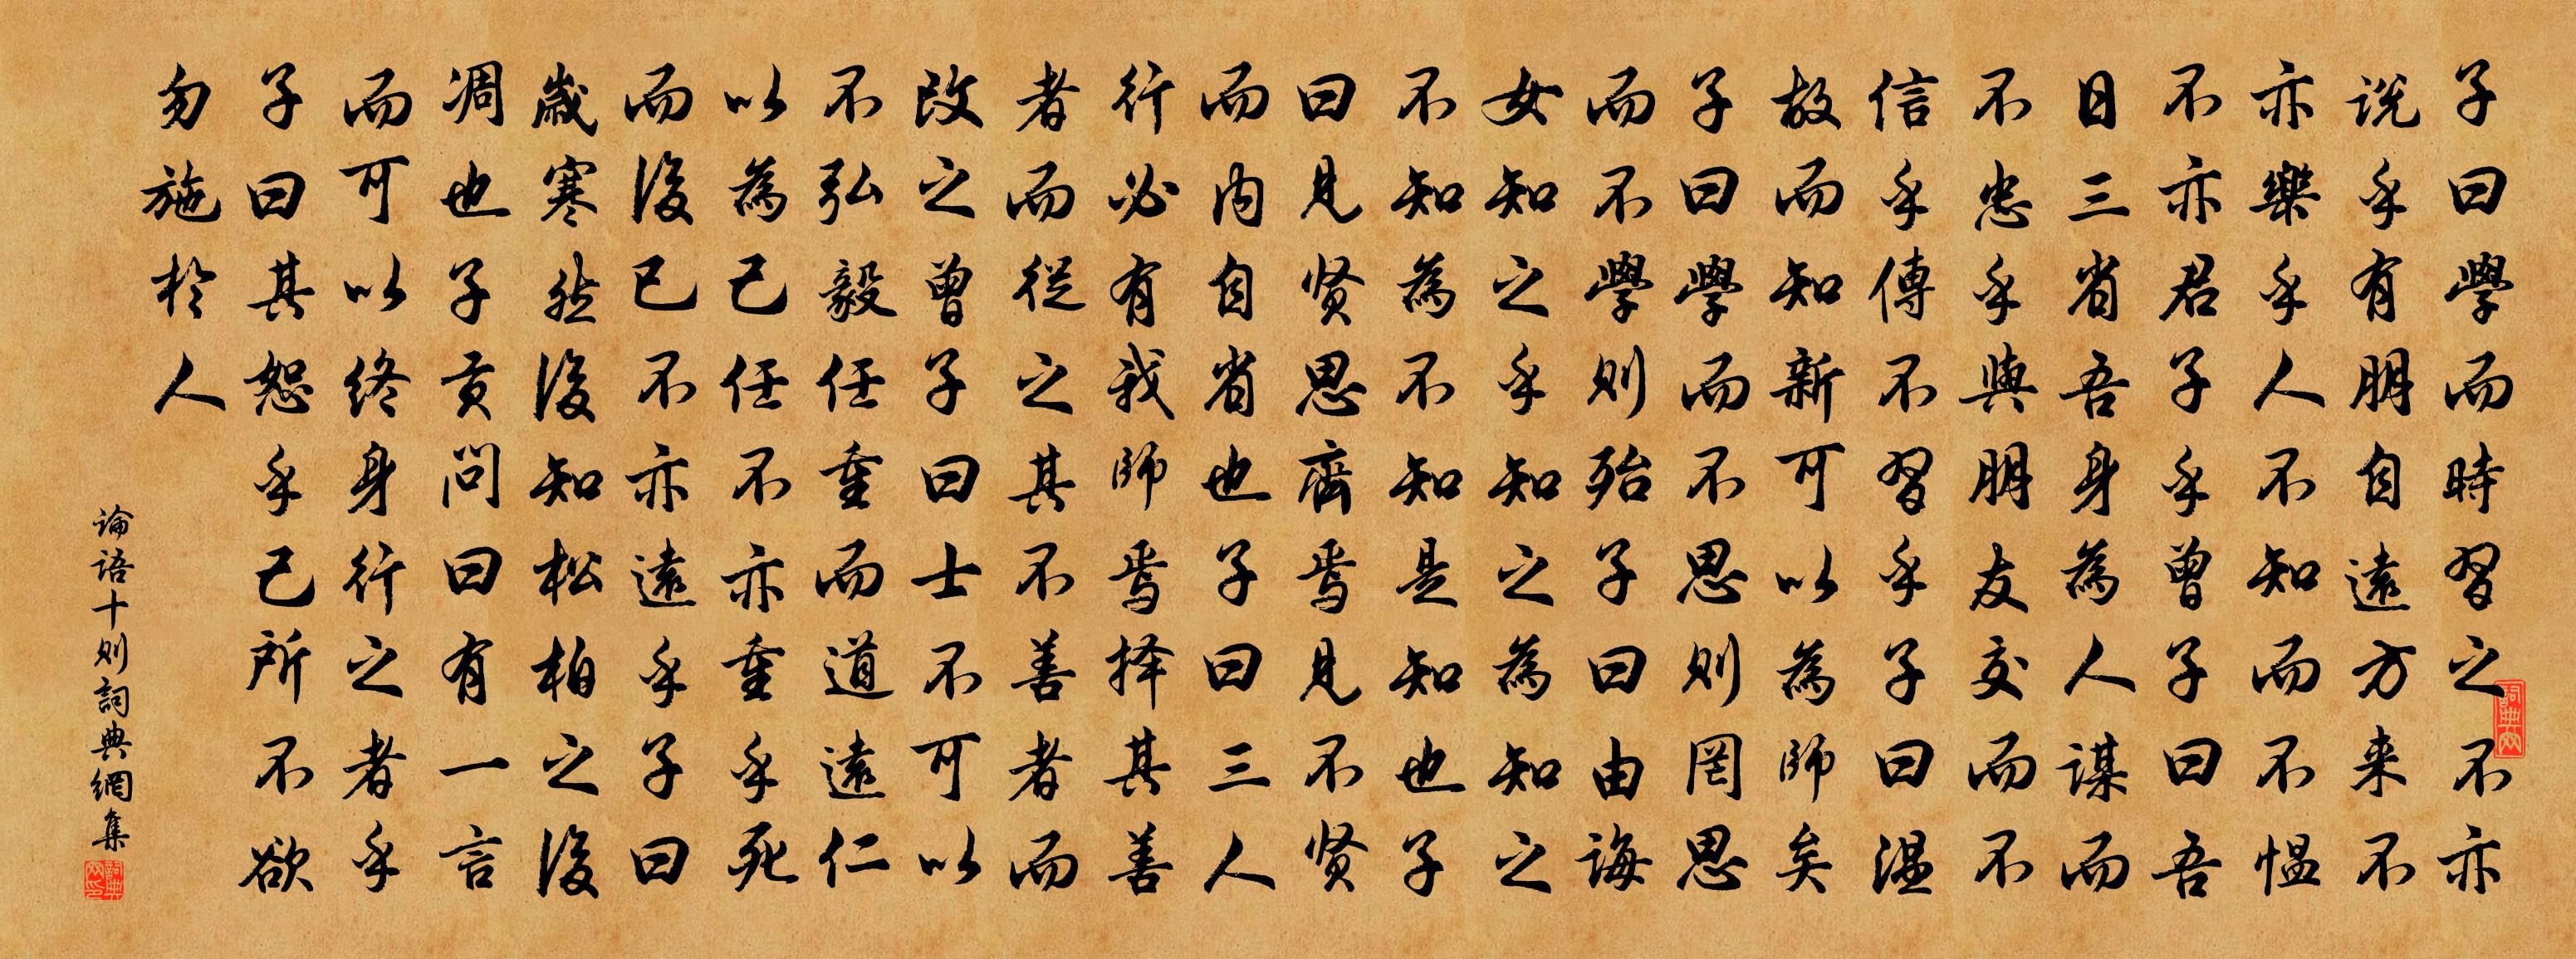 子曰學而時習之不亦
说乎有朋自遠方来不
亦樂乎人不知而不愠
不亦君子乎曾子曰吾
日三省吾身為人謀而
不忠乎與朋友交而不
信乎傳不習乎子曰温
故而知新可以為師矣
子曰學而不思则罔思
而不學则殆子曰由诲
女知之乎知之為知之
不知為不知是知也子
曰见贤思齊焉见不贤
而内自省也子曰三人
行必有我師焉择其善
者而從之其不善者而
改之曾子曰士不可以
不弘毅任重而道遠仁
以為己任不亦重乎死
而後已不亦遠乎子曰
歲寒然後知松柏之後
凋也子贡问曰有一言
而可以终身行之者乎
子曰其恕乎己所不欲
勿施於人
論语十则詞典網集
詞典网
詞典网印